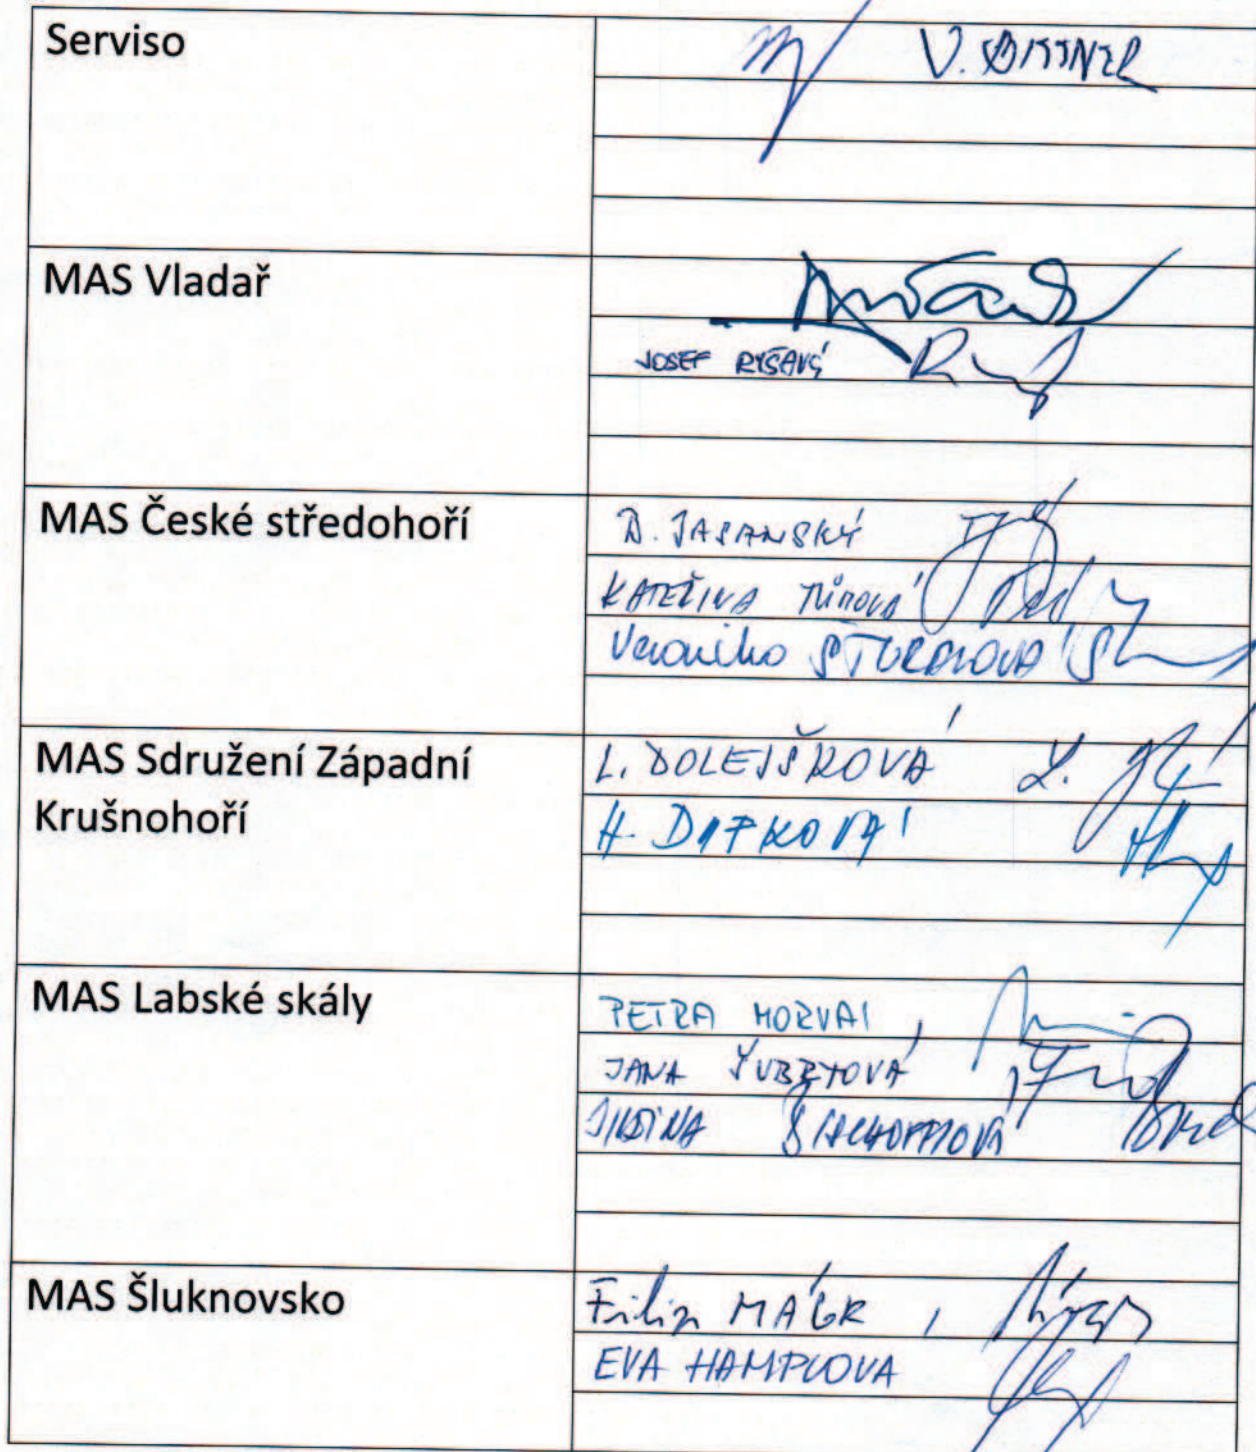 Serviso
V. BITTNER
MAS Vladař
JOSEF RYŠAVÝ
MAS České středohoří
D. JASANSKÝ
KATEŘINA TŮMOVÁ
Veronika
MAS Sdružení Západní
Krušnohoří
L. DOLEJŠKOVÁ
H.
MAS Labské skály
PETRA HORVAI ,
JANA ŠUBRTOVÁ ,
MAS Šluknovsko
Filip MÁGR ,
EVA HAMPLOVA